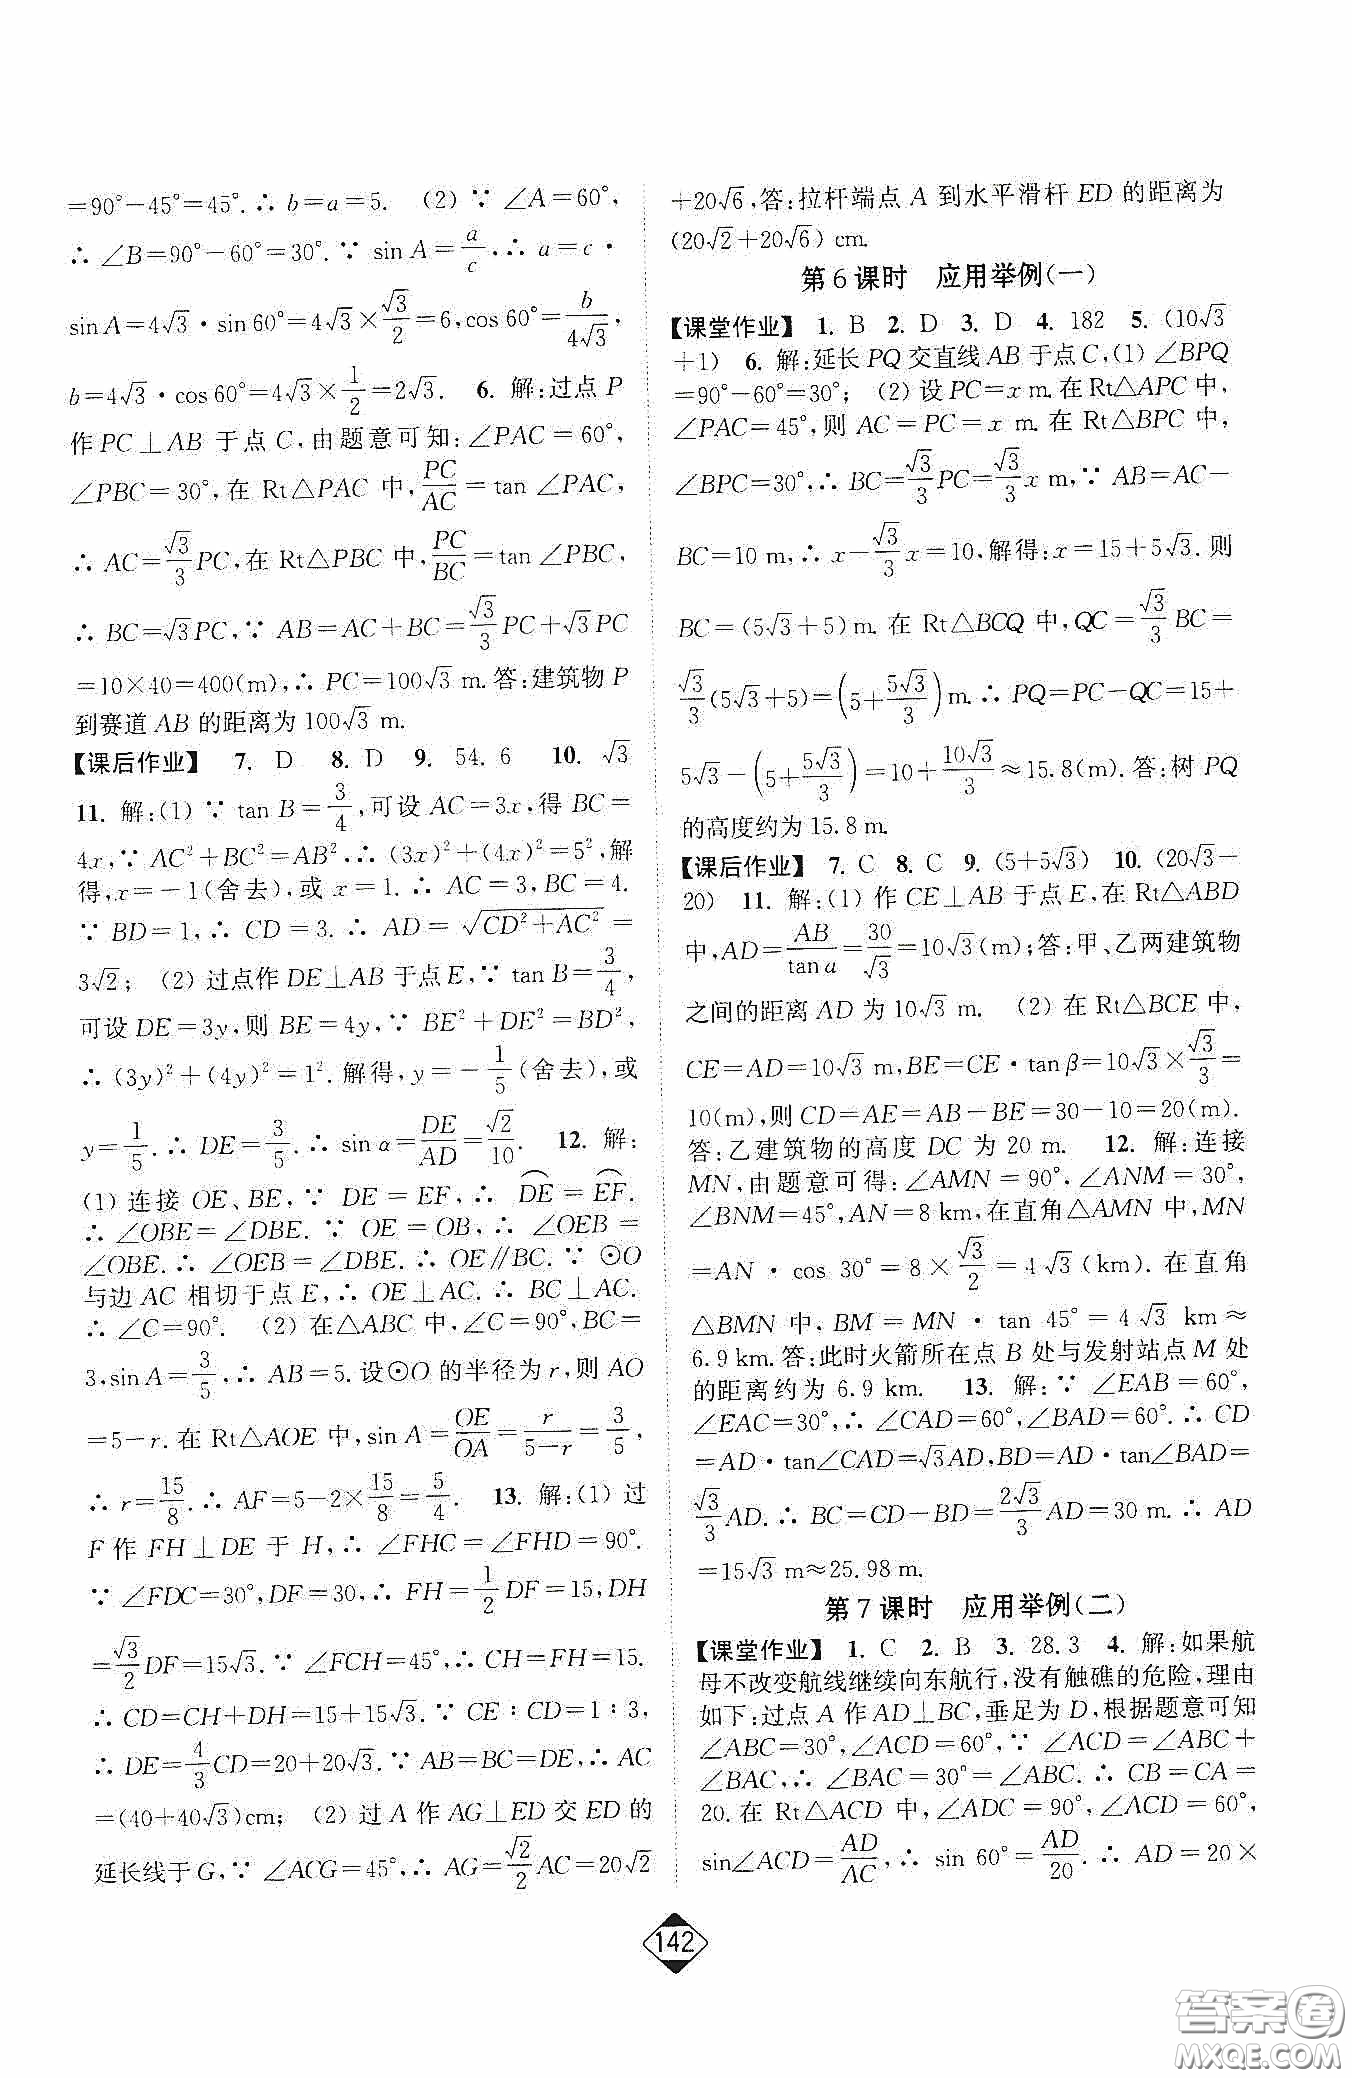 =90°-45°=45°.∴b=a=5. (2)∵∠A=60°,
∴∠B=90°-60°=30°.∵sin A=a/c,∴a=c·
sin A=4√3·sin 60°=4√3×√3/2=6,cos 60°=b/4√3,
b=4√3·cos 60°=4√3×1/2=2√3. 6. 解:过点 P
作 PC⊥AB 于点 C,由题意可知:∠PAC=60°,
∠PBC=30°,在 Rt△PAC 中,PC/AC=tan ∠PAC,
∴AC=√3/3 PC,在 Rt△PBC 中,PC/BC=tan ∠PBC,
∴BC=√3PC,∵AB=AC+BC=√3/3 PC+√3PC
=10×40=400(m),∴PC=100√3 m.答:建筑物 P
到赛道 AB 的距离为 100√3 m.
【课后作业】 7. D 8. D 9. 54.6 10. √3
11. 解:(1)∵tan B=3/4,可设 AC=3x,得 BC=
4x,∵AC²+BC²=AB²,∴(3x)²+(4x)²=5²,解
得,x=-1(舍去),或 x=1.∴AC=3,BC=4.
∵BD=1,∴CD=3.∴AD=√(CD²+AC²)=
3√2; (2)过点作 DE⊥AB 于点 E,∵tan B=3/4,
可设 DE=3y,则 BE=4y,∵BE²+DE²=BD²,
∴(3y)²+(4y)²=1².解得,y=-1/5(舍去),或
y=1/5.∴DE=3/5.∴sin α=DE/AD=√2/10. 12. 解:
(1)连接 OE、BE,∵DE=EF,∴⌒DE=⌒EF.
∴∠OBE=∠DBE.∵OE=OB,∴∠OEB=
∠OBE.∴∠OEB=∠DBE.∴OE∥BC.∵⊙O
与边 AC 相切于点 E,∴OE⊥AC.∴BC⊥AC.
∴∠C=90°. (2)在△ABC 中,∠C=90°,BC=
3,sin A=3/5,∴AB=5.设⊙O 的半径为 r,则 AO
=5-r.在 Rt△AOE 中,sin A=OE/OA=r/(5-r)=3/5,
∴r=15/8.∴AF=5-2×15/8=5/4. 13. 解:(1)过
F 作 FH⊥DE 于 H,∴∠FHC=∠FHD=90°.
∵∠FDC=30°,DF=30,∴FH=1/2 DF=15,DH
=√3/2 DF=15√3.∵∠FCH=45°,∴CH=FH=15.
∴CD=CH+DH=15+15√3.∵CE∶CD=1∶3,
∴DE=4/3 CD=20+20√3.∵AB=BC=DE,∴AC
=(40+40√3)cm; (2)过 A 作 AG⊥ED 交 ED 的
延长线于 G,∵∠ACG=45°,∴AG=√2/2 AC=20√2
+20√6,答:拉杆端点 A 到水平滑杆 ED 的距离为
(20√2+20√6) cm.
第 6 课时 应用举例(一)
【课堂作业】 1. B 2. D 3. D 4. 182 5. (10√3
+1) 6. 解:延长 PQ 交直线 AB 于点 C,(1)∠BPQ
=90°-60°=30°; (2)设 PC=x m.在 Rt△APC 中,
∠PAC=45°,则 AC=PC=x m.在 Rt△BPC 中,
∠BPC=30°,∴BC=√3/3 PC=√3/3 x m,∵AB=AC-
BC=10 m,∴x-√3/3 x=10,解得:x=15+5√3.则
BC=(5√3+5)m.在 Rt△BCQ 中,QC=√3/3 BC=
√3/3(5√3+5)=(5+5√3/3)m.∴PQ=PC-QC=15+
5√3-(5+5√3/3)=10+10√3/3≈15.8(m).答:树 PQ
的高度约为 15.8 m.
【课后作业】 7. C 8. C 9. (5+5√3) 10. (20√3-
20) 11. 解:(1)作 CE⊥AB 于点 E,在 Rt△ABD
中,AD=AB/tan α=30/√3=10√3(m);答:甲、乙两建筑物
之间的距离 AD 为 10√3 m. (2)在 Rt△BCE 中,
CE=AD=10√3 m,BE=CE·tan β=10√3×√3/3=
10(m),则 CD=AE=AB-BE=30-10=20(m).
答:乙建筑物的高度 DC 为 20 m. 12. 解:连接
MN,由题意可得:∠AMN=90°,∠ANM=30°,
∠BNM=45°,AN=8 km,在直角△AMN 中,MN
=AN·cos 30°=8×√3/2=4√3(km).在直角
△BMN 中,BM=MN·tan 45°=4√3 km≈
6.9 km.答:此时火箭所在点 B 处与发射站点 M 处
的距离约为 6.9 km. 13. 解:∵∠EAB=60°,
∠EAC=30°,∴∠CAD=60°,∠BAD=60°.∴CD
=AD·tan∠CAD=√3AD,BD=AD·tan∠BAD=
√3/3 AD.∴BC=CD-BD=2√3/3 AD=30 m.∴AD
=15√3 m≈25.98 m.
第 7 课时 应用举例(二)
【课堂作业】 1. C 2. B 3. 28.3 4. 解:如果航
母不改变航线继续向东航行,没有触礁的危险,理由
如下:过点 A 作 AD⊥BC,垂足为 D,根据题意可知
∠ABC=30°,∠ACD=60°,∵∠ACD=∠ABC+
∠BAC,∴∠BAC=30°=∠ABC.∴CB=CA=
20.在 Rt△ACD 中,∠ADC=90°,∠ACD=60°,
sin∠ACD=AD/AC,∴sin 60°=AD/20.∴AD=20×
142
答案圈
MXQE.COM